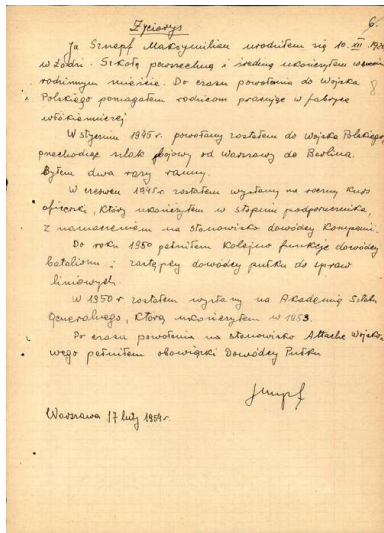 6.
Życiorys
Ja Sznepf Maksymilian urodziłem się 10. XII 1920
w Łodzi. Szkołę powszechną i średnią ukończyłem w moim
rodzinnym mieście. Do czasu powołania do Wojska
Polskiego pomagałem rodzicom pracując w fabryce
włókienniczej
W styczniu 1945 r. powołany zostałem do Wojska Polskiego,
przechodząc szlak bojowy od Warszawy do Berlina.
Byłem dwa razy ranny.
W czerwcu 1945 r. zostałem wysłany na roczny kurs
oficerski, który ukończyłem w stopniu podporucznika,
z naznaczeniem na stanowisko dowódcy kompanii.
Do roku 1950 pełniłem kolejno funkcje dowódcy
batalionu i zastępcy dowódcy pułku do spraw
liniowych.
W 1950 r zostałem wysłany na Akademię Sztabu
Generalnego, którą ukończyłem w 1953.
Do czasu powołania na stanowisko Attache Wojsko-
wego pełniłem obowiązki Dowódcy Pułku
Sznepf
Warszawa 17 luty 1954 r.